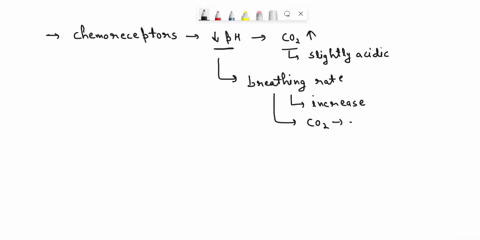 → chemoreceptors → ↓ pH → CO₂ ↑
↳ slightly acidic
↳ breathing rate
↳ increase
↳ CO₂ →